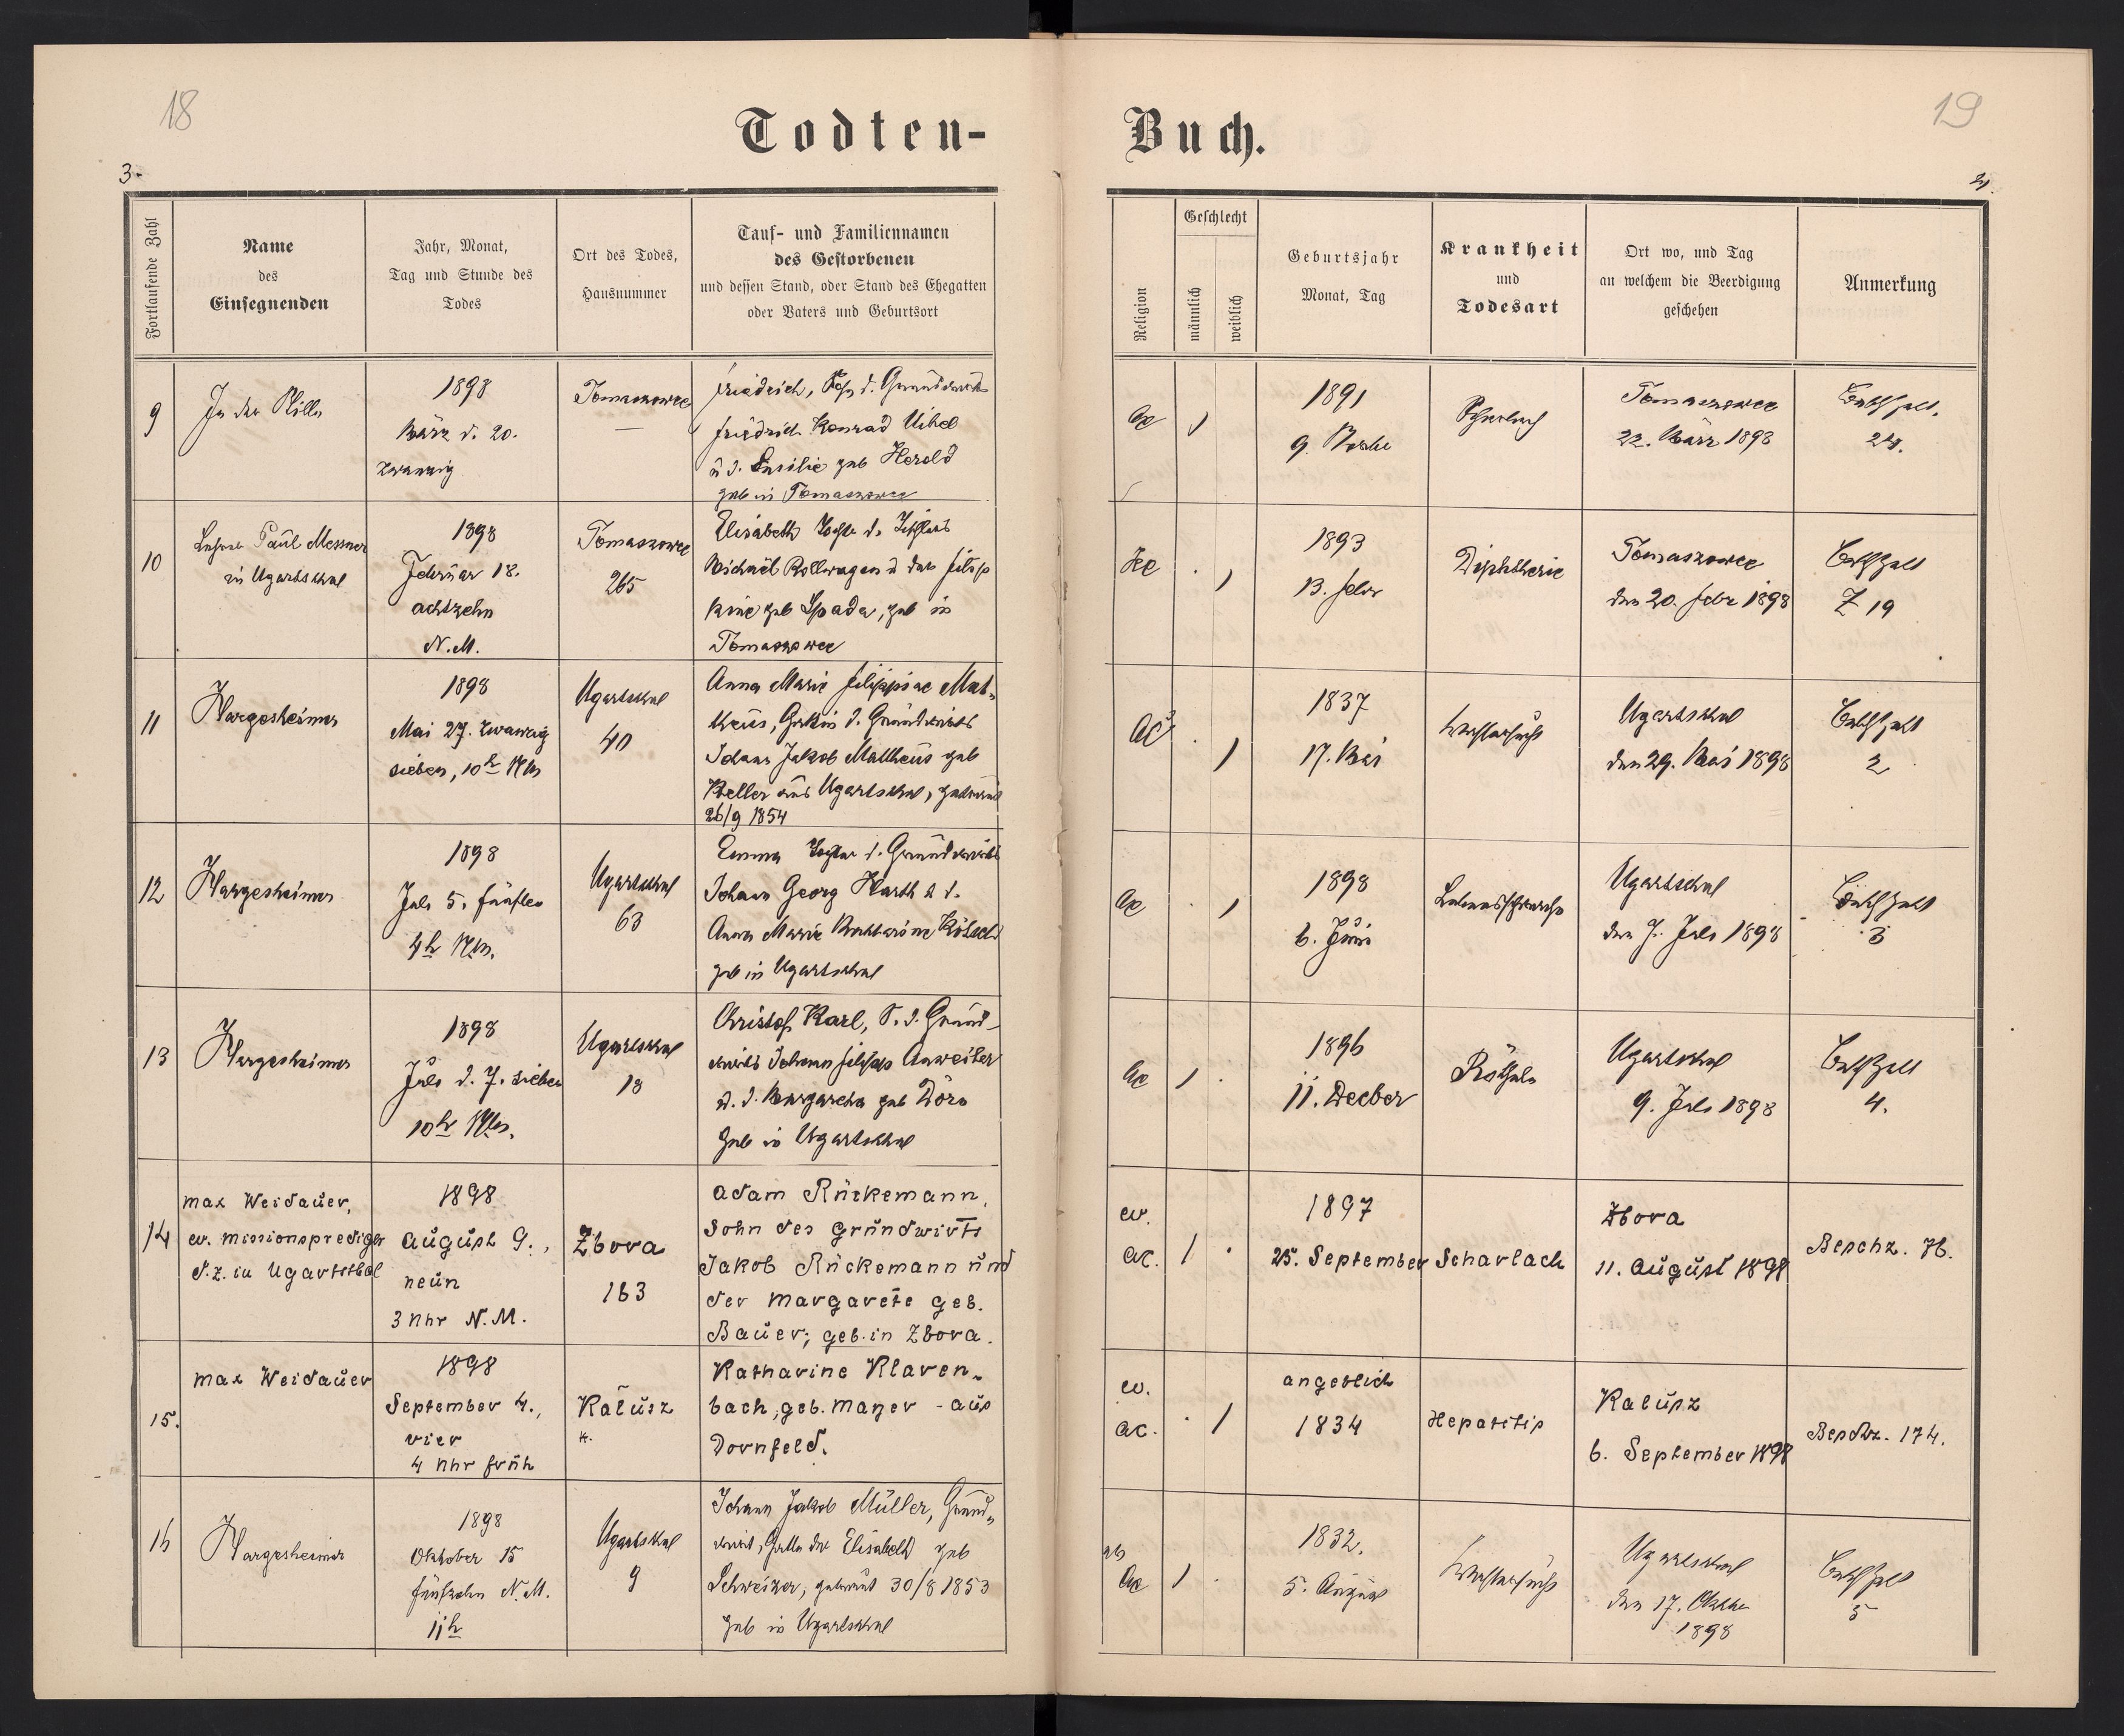 18
19
Todten-
Buch.
3.
Fortlaufende Zahl
Name
des
Einsegnenden
Jahr, Monat,
Tag und Stunde des
Todes
Ort des Todes,
Hausnummer
Tauf- und Familiennamen
des Gestorbenen
und dessen Stand, oder Stand des Ehegatten
oder Vaters und Geburtsort
Religion
Geschlecht
männlich
weiblich
Geburtsjahr
Monat, Tag
Krankheit
und
Todesart
Ort wo, und Tag
an welchem die Beerdigung
geschehen
Anmerkung
9
In der Stille
1898
März d. 20.
zwanzig
Tomaszowce
—
Friedrich, Sohn d. Grundwirts
Friedrich Konrad Uibel
geb Herold
geb in Tomaszowce
ac
1891
9.
Scharlach
Tomaszowce
22. März 1898
24.
10
Lehrer Paul Messner
in Ugartsthal
1898
Februar 18.
achtzehn
N.M.
Tomaszowce
265
Elisabeth Tochter d.
Michael Rollwagen u der Filip
pine geb Spada, geb in
Tomaszowce
1893
13. Febr
Diphtherie
Tomaszowce
den 20. Febr 1898
Z 19
11
Hargesheimer
1898
Mai 27. zwanzig
sieben, 10h
Ugartsthal
40
Anna Marie Filippine Mat-
theus, Gattin d. Grundwirts
Johann Jakob Mattheus geb
Keller aus Ugartsthal, getraut
26/9 1854
1837
17. Mai
Wassersucht
Ugartsthal
den 29. Mai 1898
2
12
Hargesheimer
1898
Juli 5. fünften
4h
Ugartsthal
63
Emma Tochter d. Grundwirts
Johann Georg Harth u d.
Anna Marie Katharine
geb in Ugartsthal
ac
1898
6. Juni
Lebensschwäche
Ugartsthal
den 7. Juli 1898
3
13
Hargesheimer
1898
Juli d. 7. sieben
10h
Ugartsthal
18
Christof Karl, S. d. Grund-
wirts Johann Filipp Anweiler
u. d. Margaretha geb
geb in Ugartsthal
ac
1896
11. Decber
Rötheln
Ugartsthal
9. Juli 1898
4.
14
Max Weidauer,
ev. Missionsprediger
d.z. in Ugartsthal
1898
August 9.,
neun
3 Uhr N.M.
Zbora
163
Adam Rückemann,
Sohn des Grundwirts
Jakob Rückemann und
der Margarete geb.
Bauer; geb. in Zbora.
ev.
ac.
1897
25. September
Scharlach
Zbora
11. August 1898
Beschz. 76.
15.
Max Weidauer
1898
September 4.,
vier
4 Uhr früh
Kalusz
Katharine Klaven-
bach, geb. Mayer - aus
Dornfeld.
ev.
ac.
angeblich
1834
Hepatitis
Kalusz
6. September 1898
Beschz. 174.
16
Hargesheimer
1898
Oktober 15
fünfzehn N.M.
11h
Ugartsthal
9
Johann Jakob Müller, Grund-
wirt, Gatte der Elisabeth geb
Schweizer, getraut 30/8 1853
geb in Ugartsthal
ac
1832.
5. August
Wassersucht
Ugartsthal
den 17. Oktober
1898
5